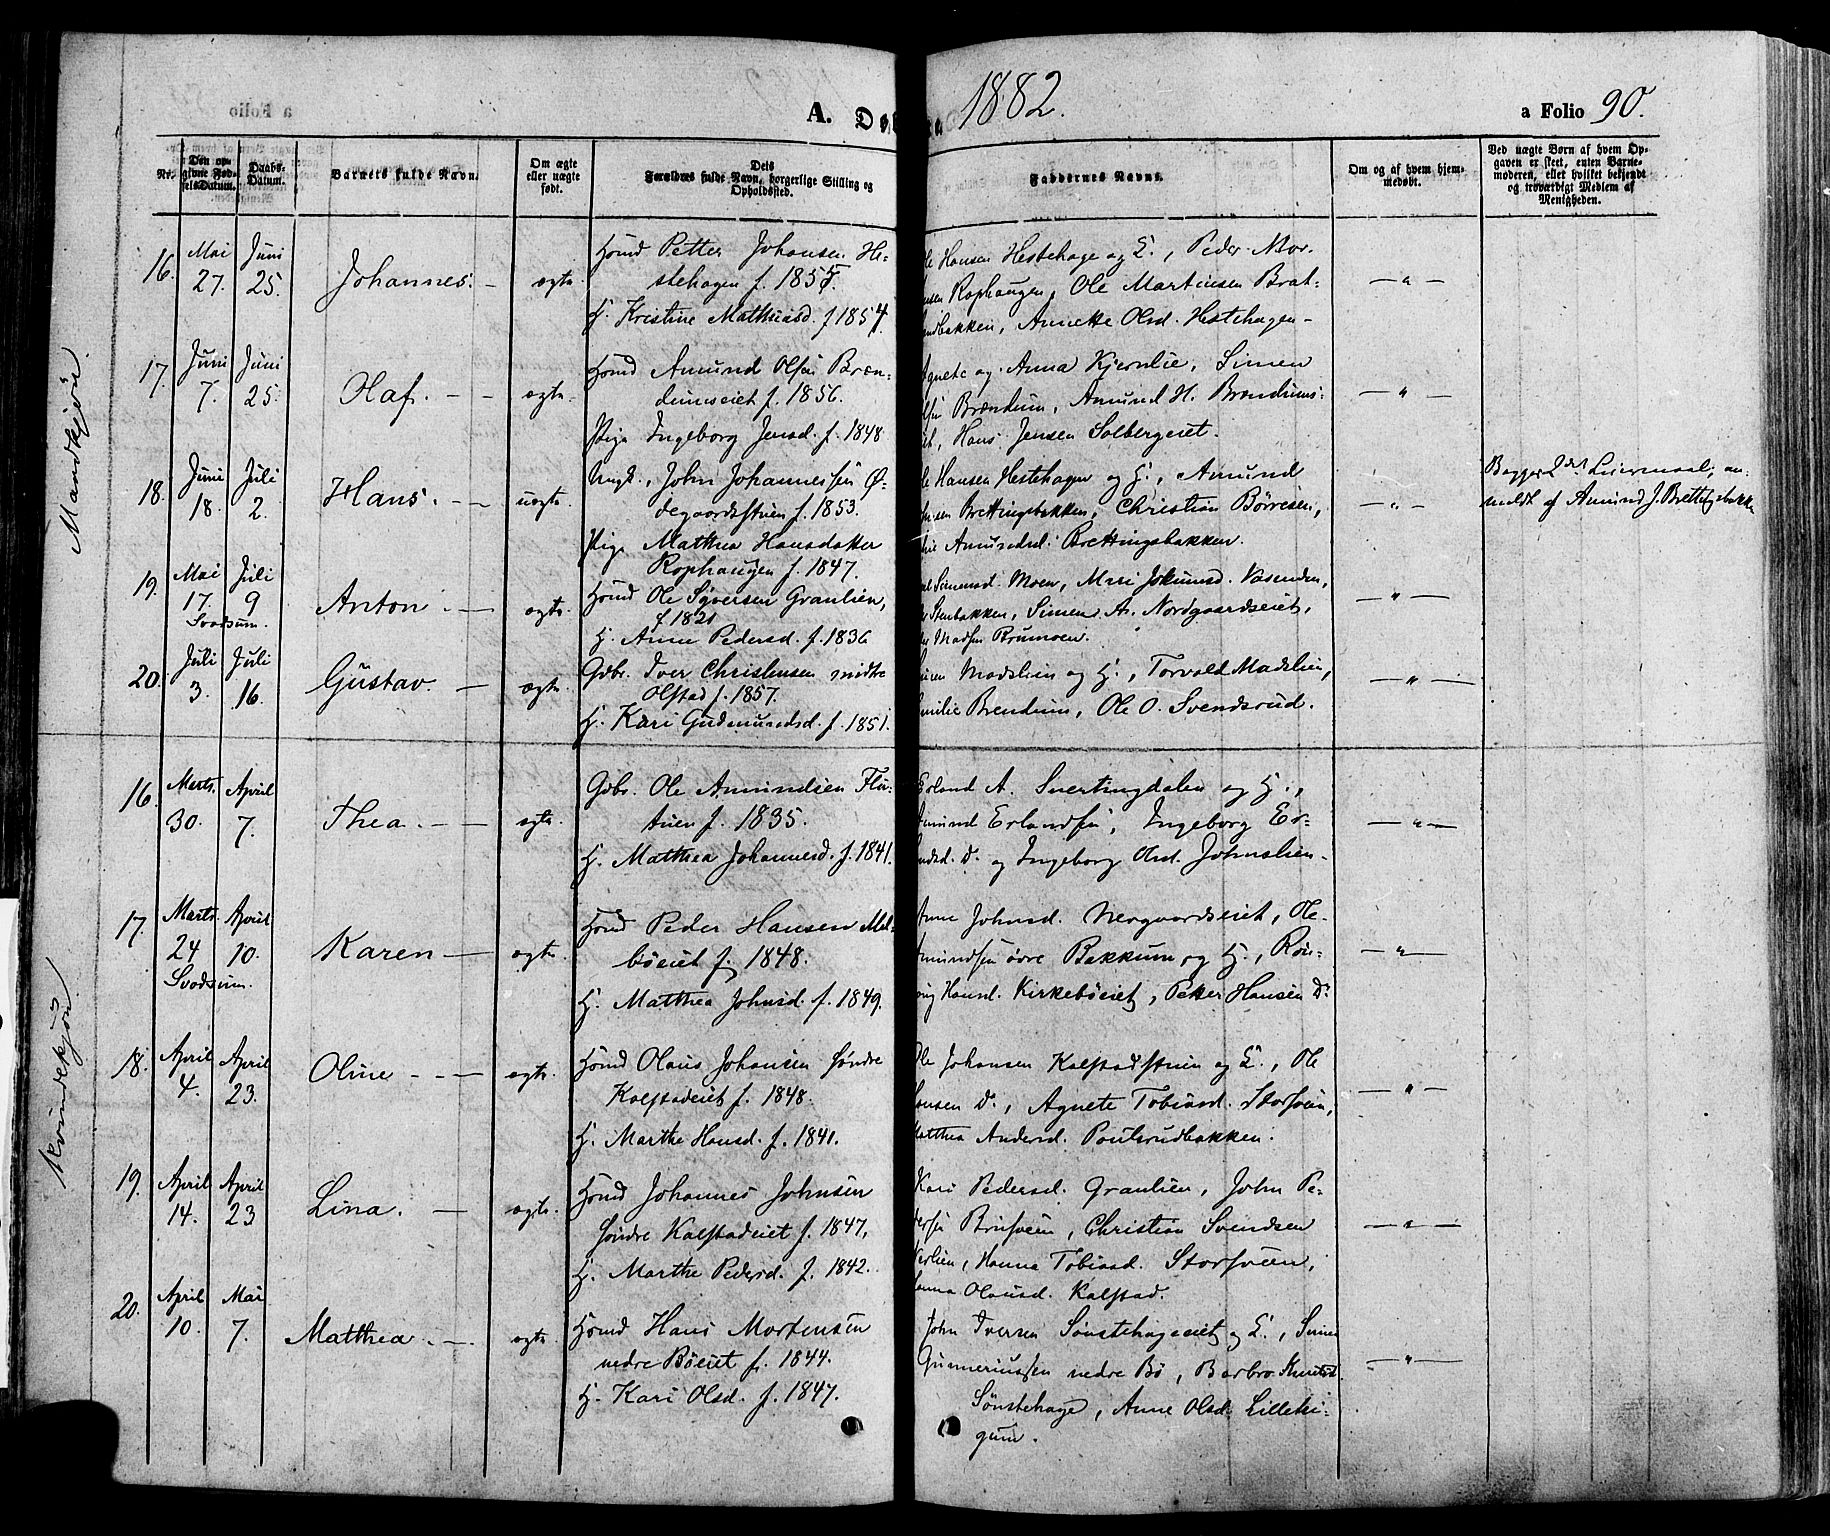 A. Dø 1882. a Folio 90.
Nr.
Den op-
givne Fød-
selsDatum.
Daabs-
Datum.
Barnets fulde Navn.
Om ægte
eller uægte
født.
Dets
Forældres fulde Navn, borgerlige Stilling og
Opholdssted.
Faddernes Navne.
Om og af hvem hjem-
medøbt.
Ved uægte Børn af hvem Op-
gaven er skeet, enten Barne-
moderen, eller hvilket bekjendt
og troværdigt Medlem af
Menigheden.
Mandkjøn.
16. Mai 27. Juni 25. Johannes. - ægte.
Hsmd Petter Johansen He-
stehagen f. 1855.
H. Kristine Mathiasd. f. 1854.
Hansen Hestehage og H., Peder Mor-
Rophaugen, Ole Martinsen Brat-
Annette Olsd. Hestehagen -
— " —
17. Juni 7. Juni 25. Olaf. - - ægte.
Hsmd Amund Olsen Bræn-
dumseiet f. 1856.
Pige Ingeborg Jensd. f. 1848
og Anna Kjernlie, Simen
Brændum, Amund H. Brændums-
Hans Jensen Solbergeiet.
— " —
18. Juni 18. Juli 2. Hans. - - uægte.
Ungk., John Johannessen Ø-
degaardsstuen f. 1853.
Pige Matthea Hansdatter
Rophaugen f. 1847.
Hansen Hestehagen og H., Amund
Brettingsbakken, Christian Børresen,
Amundsd. Brettingsbakken.
— " —
Begges 2det Leiermaal, an-
meldt af Amund J. Brettingsbakken
19. Mai 17. Juli 9 Anton. - ægte.
Svadsum.
Hsmd Ole Syversen Granlien,
f. 1821
H. Anne Pedersd. f. 1836
Simensd. Moen, Mari Joknusd. Vasenden,
Stenbakken, Simen A. Nordgaardseiet,
Madsen Brumoen.
— " —
20. Juli 3. Juli 16. Gustav. - ægte.
Gdbr. Iver Christensen midtre
Olstad f. 1857.
H. Kari Gudmundsd. f. 1851.
Madslien og H., Torvald Madslien,
Brendum, Ole O. Svendsrud.
— " —
Kvindekjøn.
16. Marts. 30. April 7. Thea. - - ægte.
Gdbr. Ole Amundsen Flu-
tuen f. 1835.
H. Matthea Johannesd. f. 1841.
Erland A. Svertingdalen og H.,
Amund Erlandsen, Ingeborg Er-
D. og Ingeborg Olsd. Johnslien -
— " —
17. Marts. 24 April 10. Karen - ægte.
Svadsum.
Hsmd Peder Hansen Mel-
bøeiet f. 1848.
H. Matthea Johnsd. f. 1849.
Anne Johnsd. Nergaardseiet, Ole
Amundsen øvre Bakkum og H., Røn-
Hansd. Kirkebøeiet, Peter Hansen D.
— " —
18. April 4. April 23. Oline - - - ægte.
Hsmd Olaus Johansen søndre
Kalstadeiet f. 1848.
H. Marthe Hansd. f. 1841.
Ole Johansen Kalstadstuen og H., Ole
D., Agnete Tobiasd. Storsveen,
Matthea Andersd. Poulsrudbakken.
— " —
19. April 14. April 23 Lina. - ægte.
Hsmd Johannes Johnsen
søndre Kalstadeiet f. 1847,
H. Marthe Pedersd. f. 1842.
Kari Pedersd. Granlien, John Pe-
dersen Brusveen, Christian Svendsen
Hanna Tobiasd. Storsveen,
Olausd. Kalstad.
— " —
20. April 10. Mai 7. Matthea. - ægte.
Hsmd Hans Mortensen
nedre Bøeiet f. 1844.
H. Kari Olsd. f. 1847.
John Iversen Sønstehageeiet og H., Simen
Gunneriussen nedre Bø, Barbro Knutsd.
Sønstehage, Anne Olsd. Lilleki-
gum.
— " —